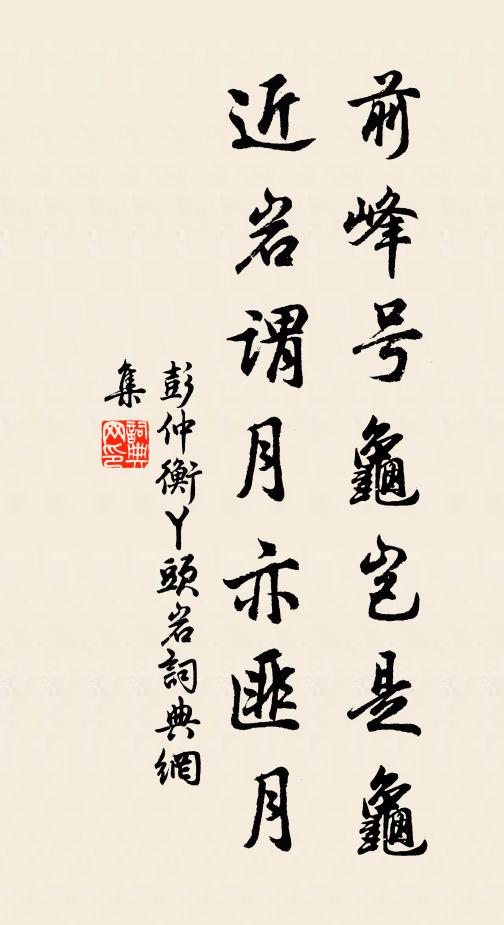 前峰号龜岂是龜
近岩谓月亦匪月
彭仲衡丫頭岩詞典網
集
詞典
网印